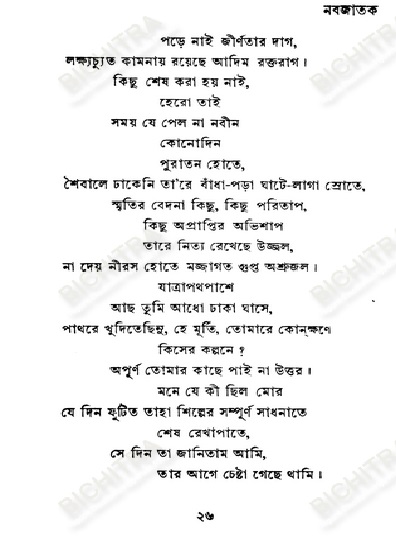 নবজাতক
পড়ে নাই জীর্ণতার দাগ,
লক্ষ্যচ্যুত কামনায় রয়েছে আদিম রক্তরাগ।
কিছু শেষ করা হয় নাই,
হেরো তাই
সময় যে পেল না নবীন
কোনোদিন
পুরাতন হোতে,
শৈবালে ঢাকেনি তা'রে বাঁধা-পড়া ঘাটে-লাগা স্রোতে,
স্মৃতির বেদনা কিছু, কিছু পরিতাপ,
কিছু অপ্রাপ্তির অভিশাপ
তারে নিত্য রেখেছে উজ্জ্বল,
না দেয় নীরস হোতে মজ্জাগত গুপ্ত অশ্রুজল।
যাত্রাপথপাশে
আছ তুমি আধো ঢাকা ঘাসে,
পাথরে খুদিতেছিনু, হে মূর্তি, তোমারে কোন্‌ক্ষণে
কিসের কল্পনে ?
অপূর্ণ তোমার কাছে পাই না উত্তর।
মনে যে কী ছিল মোর
যে দিন ফুটিত তাহা শিল্পের সম্পূর্ণ সাধনাতে
শেষ রেখাপাতে,
সে দিন তা জানিতাম আমি,
তার আগে চেষ্টা গেছে থামি।
২৬
BICHITRA
BICHITRA
BICHITRA
BICHITRA
BICHITRA
BICHITRA